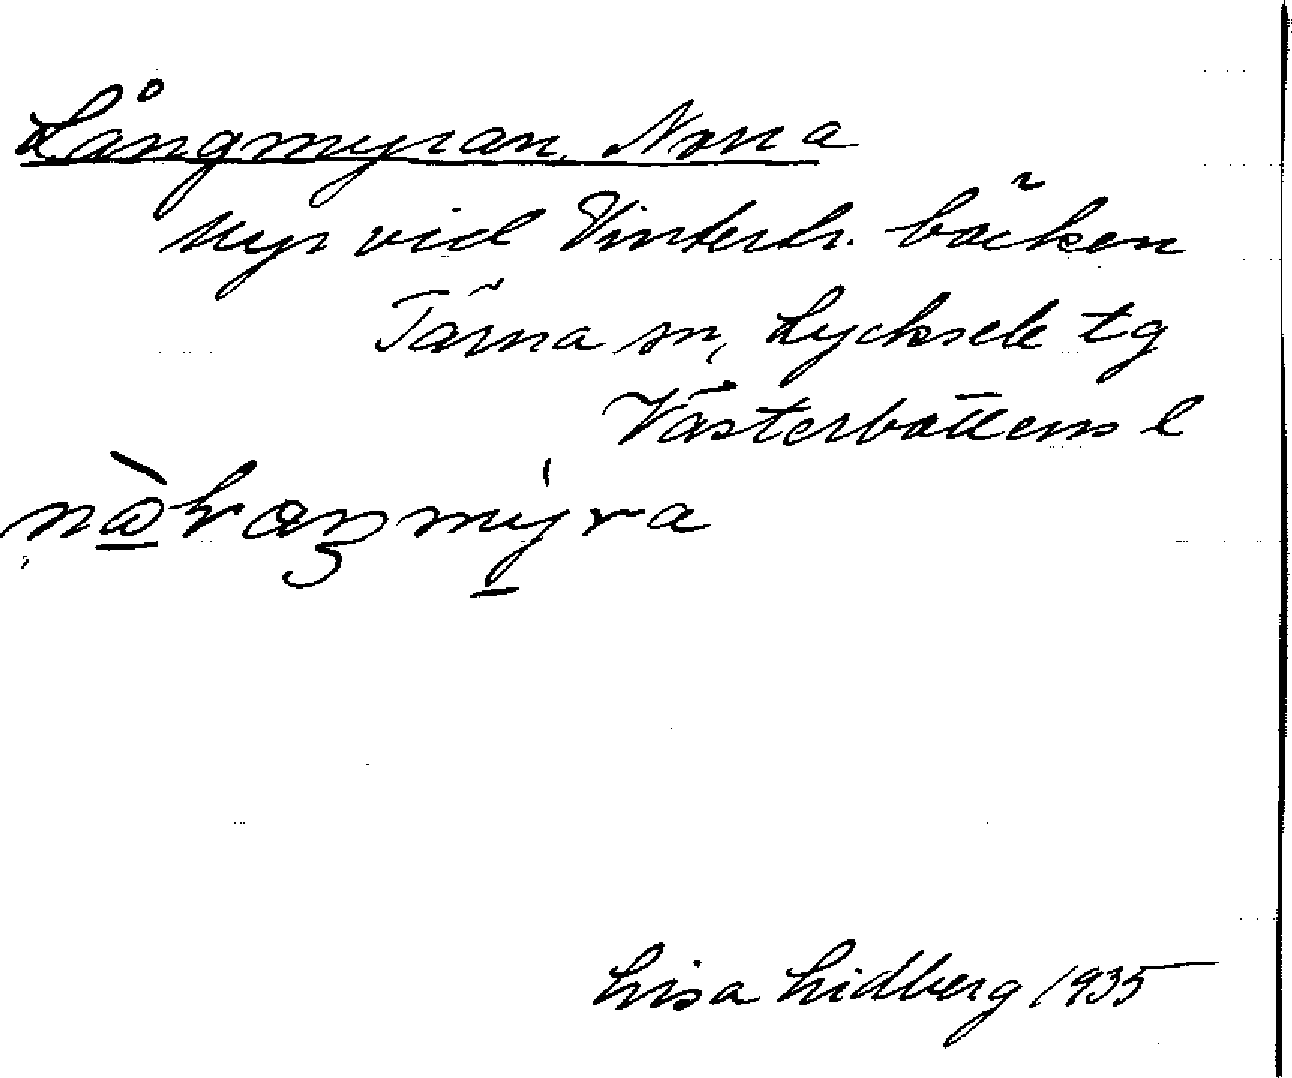 Långmyran, Norra
Myr vid Vintertr. bäcken
Tärna sn, Lycksele tg
Västerbottens l
Lisa Lidberg 1935